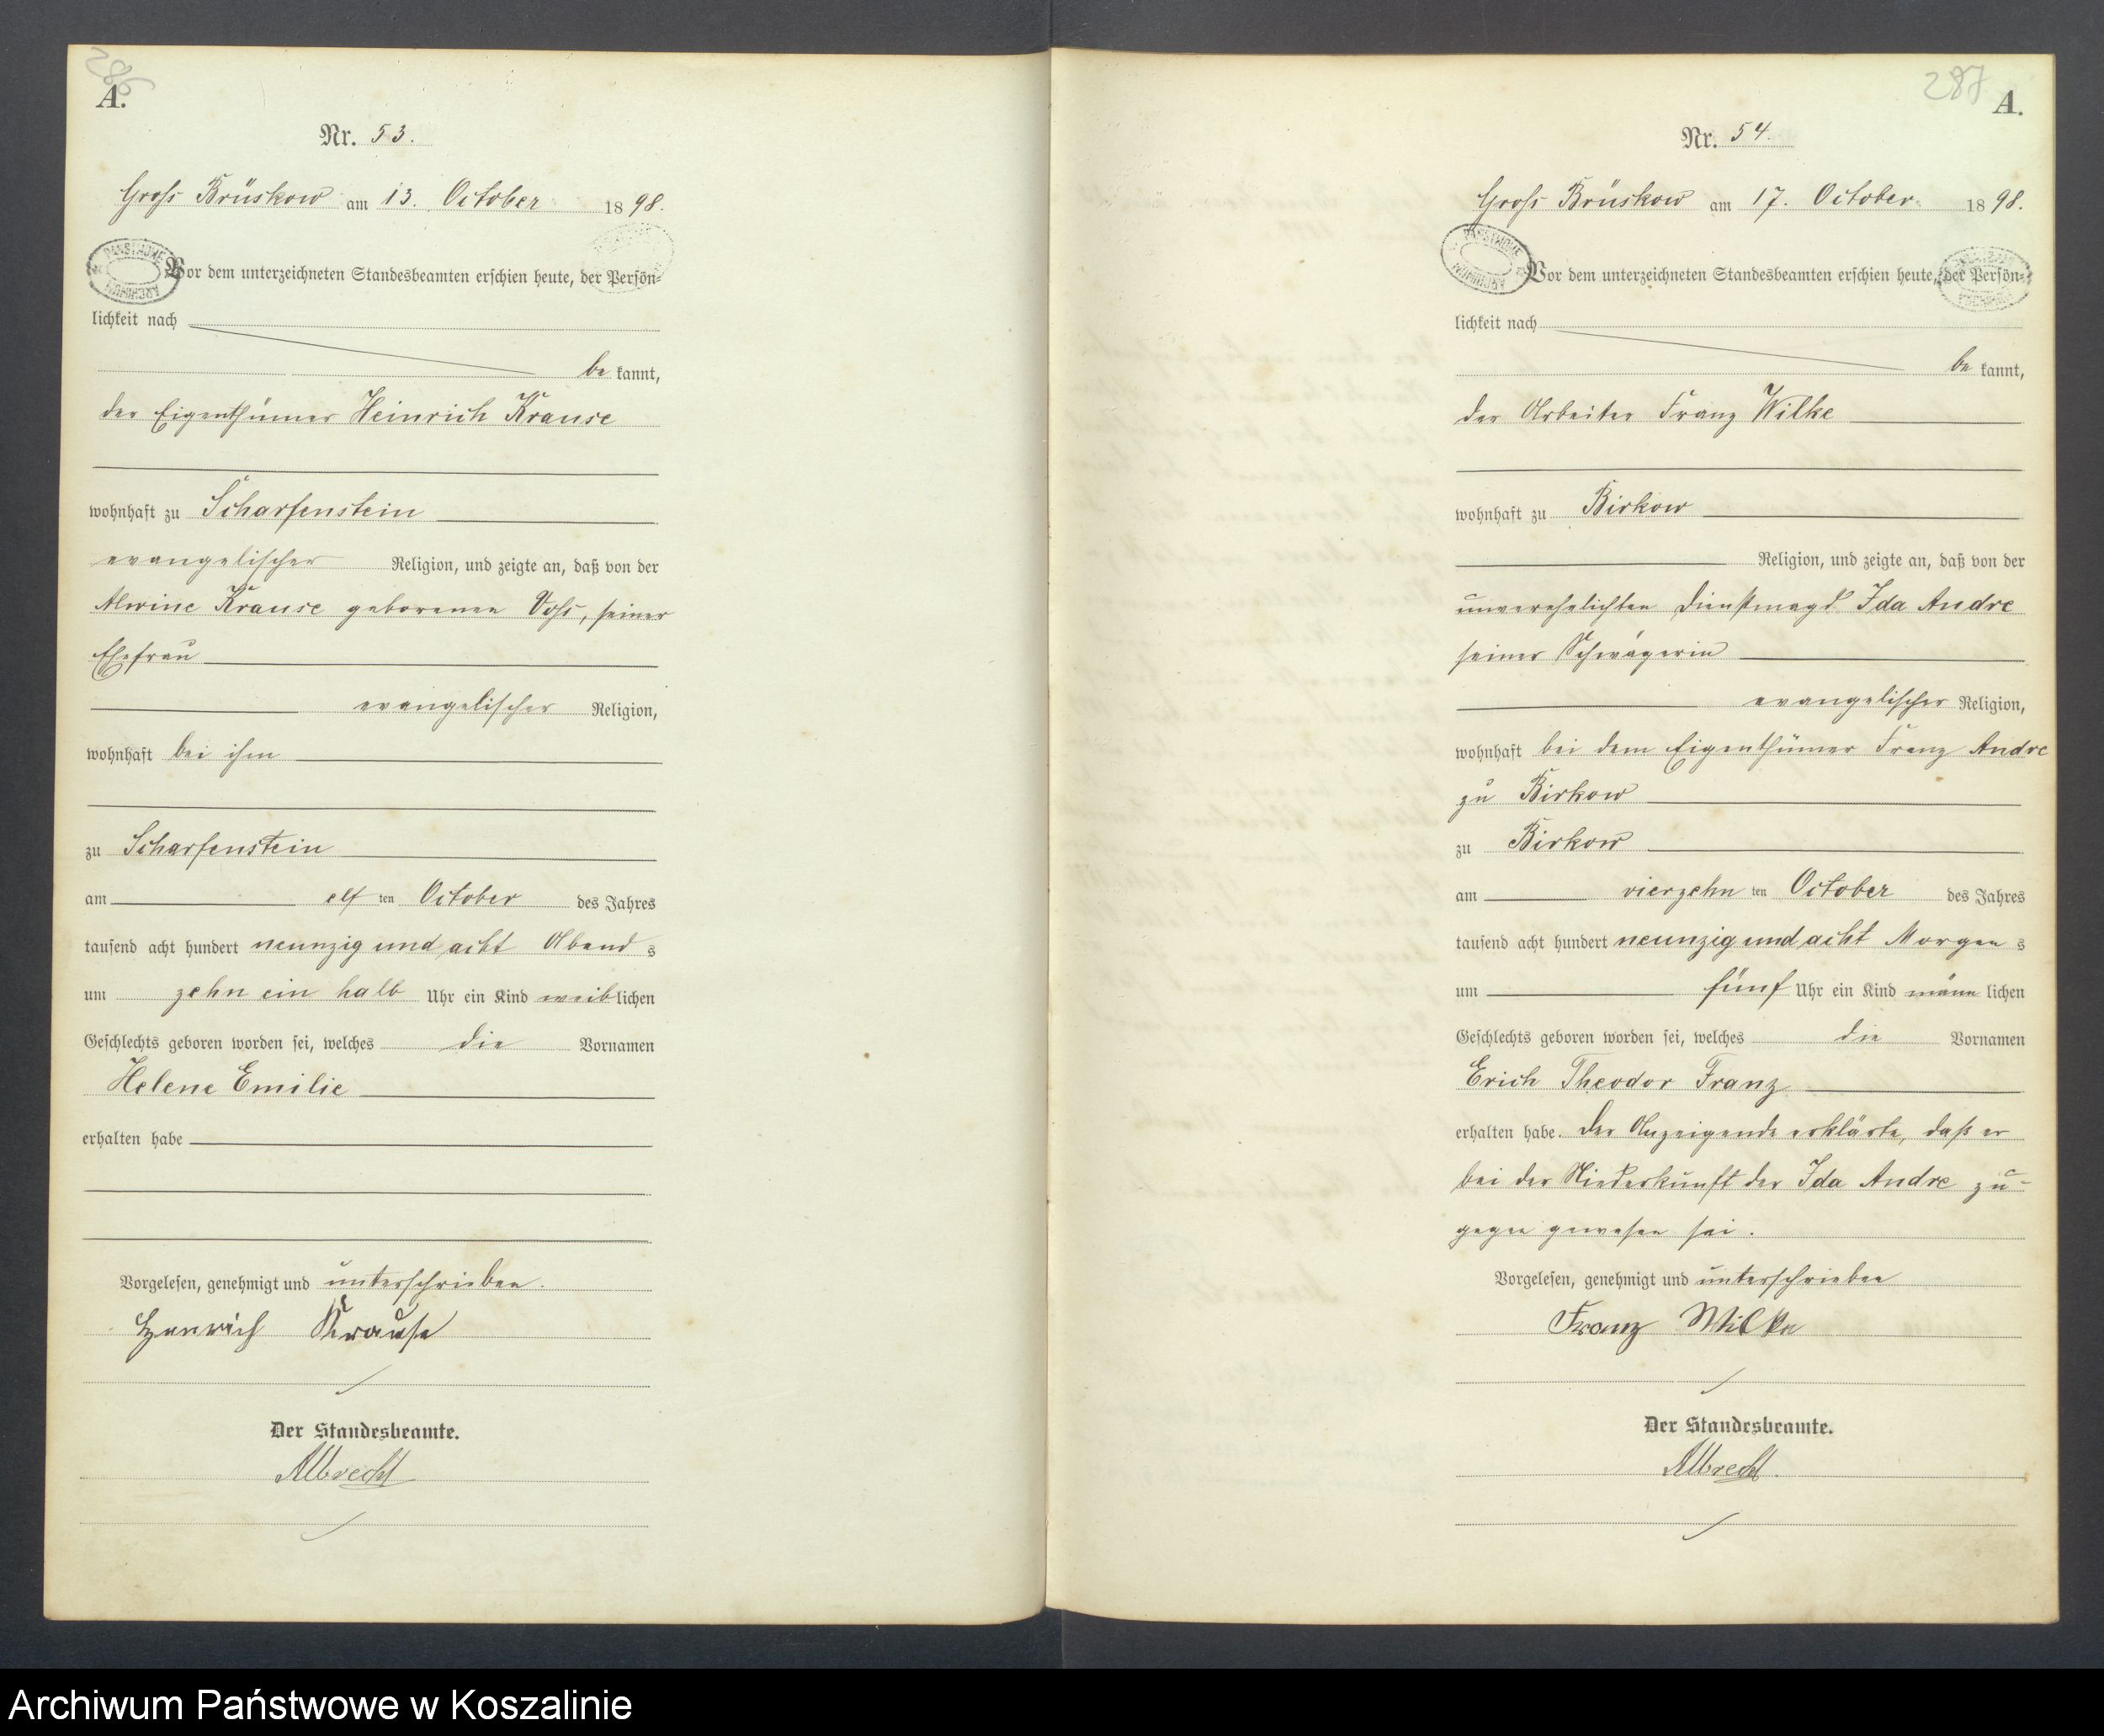 286
A.
Nr. 53.
Gross Brüskow am 13. October 1898.
Vor dem unterzeichneten Standesbeamten erschien heute, der Persön-
lichkeit nach
be kannt,
der Eigenthümer Heinrich Krause
wohnhaft zu Scharfenstein
evangelischer Religion, und zeigte an, daß von der
Alwine Krause geborenen Voss, seiner
Ehefrau
evangelischer Religion,
wohnhaft bei ihm
zu Scharfenstein
am elf ten October des Jahres
tausend acht hundert neunzig und acht Abend s
um zehn ein halb Uhr ein Kind weiblichen
Geschlechts geboren worden sei, welches die Vornamen
Helene Emilie
erhalten habe
Vorgelesen, genehmigt und unterschrieben.
Heinrich Krause
Der Standesbeamte.
Albrecht
287
A.
Nr. 54.
Gross Brüskow am 17. October 1898.
ARCHIWUM PAŃSTWOWE
Vor dem unterzeichneten Standesbeamten erschien heute, der Persön-
lichkeit nach
be kannt,
der Arbeiter Franz Wilke
wohnhaft zu Birkow
Religion, und zeigte an, daß von der
unverehelichten Dienstmagd Ida Andre
seiner Schwägerin
evangelischer Religion,
wohnhaft bei dem Eigenthümer Franz Andre
zu Birkow
zu Birkow
am vierzehn ten October des Jahres
tausend acht hundert neunzig und acht Morgen s
um fünf Uhr ein Kind männ lichen
Geschlechts geboren worden sei, welches die Vornamen
Erich Theodor Franz
erhalten habe. Der Anzeigende erklärte, daß er
bei der Niederkunft der Ida Andre zu-
gegen gewesen sei.
Vorgelesen, genehmigt und unterschrieben
Franz Wilke
Der Standesbeamte.
Albrecht.
Archiwum Państwowe w Koszalinie